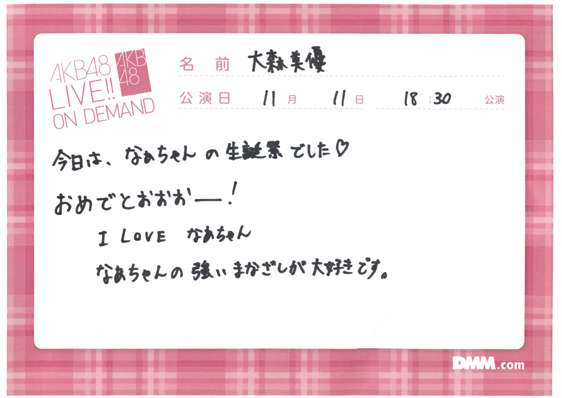 AKB48
LIVE!!
ON DEMAND
AKB
48
名前 大森美優
公演日 11月 11日 18:30 公演
今日は、なぁちゃんの生誕祭でした♡
おめでとおおおー!
I LOVE なあちゃん
なあちゃんの強いまなざしが大好きです。
DMM.com